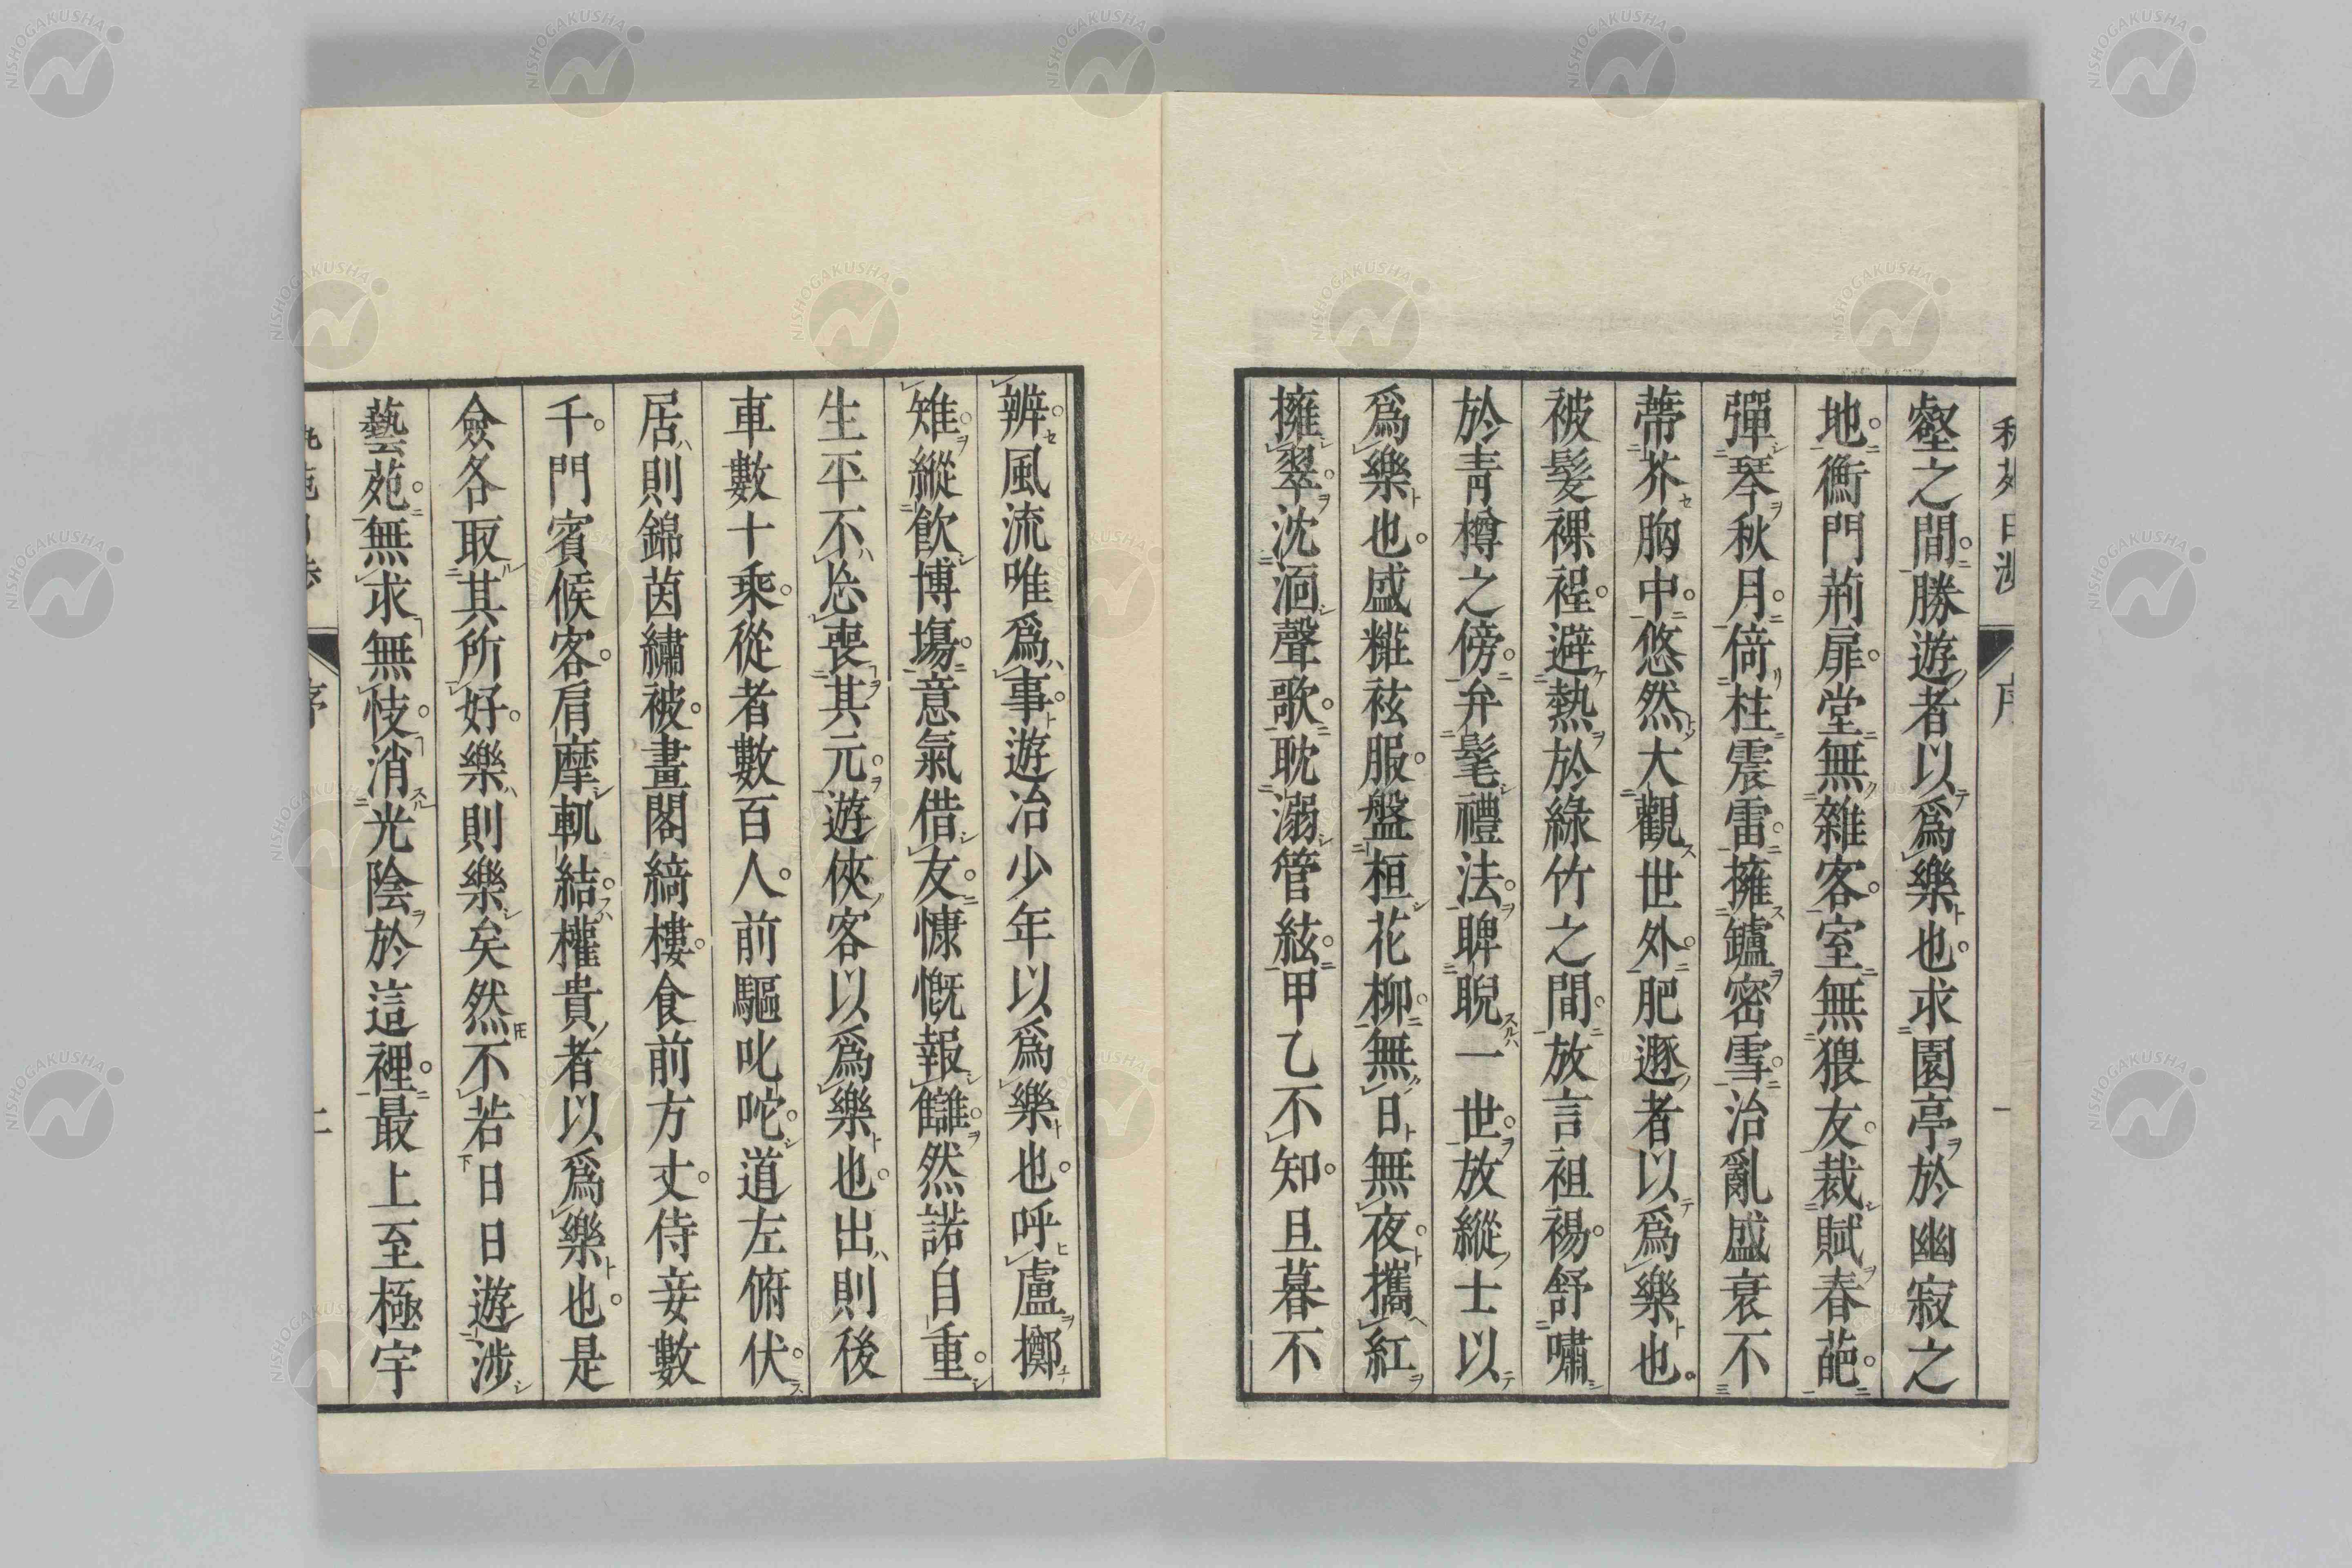 壑之間勝遊者以爲樂也求園亭於幽寂之
地衡門荊扉堂無雜客室無猥友裁賦春葩
彈琴秋月倚柱震雷擁鑪密雪治亂盛衰不
蔕芥胸中悠然大觀世外肥遯者以爲樂也
被髮裸裎避熱於綠竹之間放言袒裼舒嘯
於靑樽之傍弁髦禮法睥睨一世放縱士以
爲樂也盛糚袨服盤桓花柳無日無夜攜紅
擁翠沈湎聲歌耽溺管絃甲乙不知旦暮不
辨風流唯爲事遊冶少年以爲樂也呼盧擲
雉縱飮博塲意氣借友慷慨報讎然諾自重
生平不忘喪其元遊俠客以爲樂也出則後
車數十乘從者數百人前驅叱咤道左俯伏
居則錦茵繡被畫閣綺樓食前方丈侍妾數
千門賓候客肩摩軌結權貴者以爲樂也是
僉各取其所好樂則樂矣然不若日日遊涉
藝苑無求無忮消光陰於這裡最上至極宇
序
二